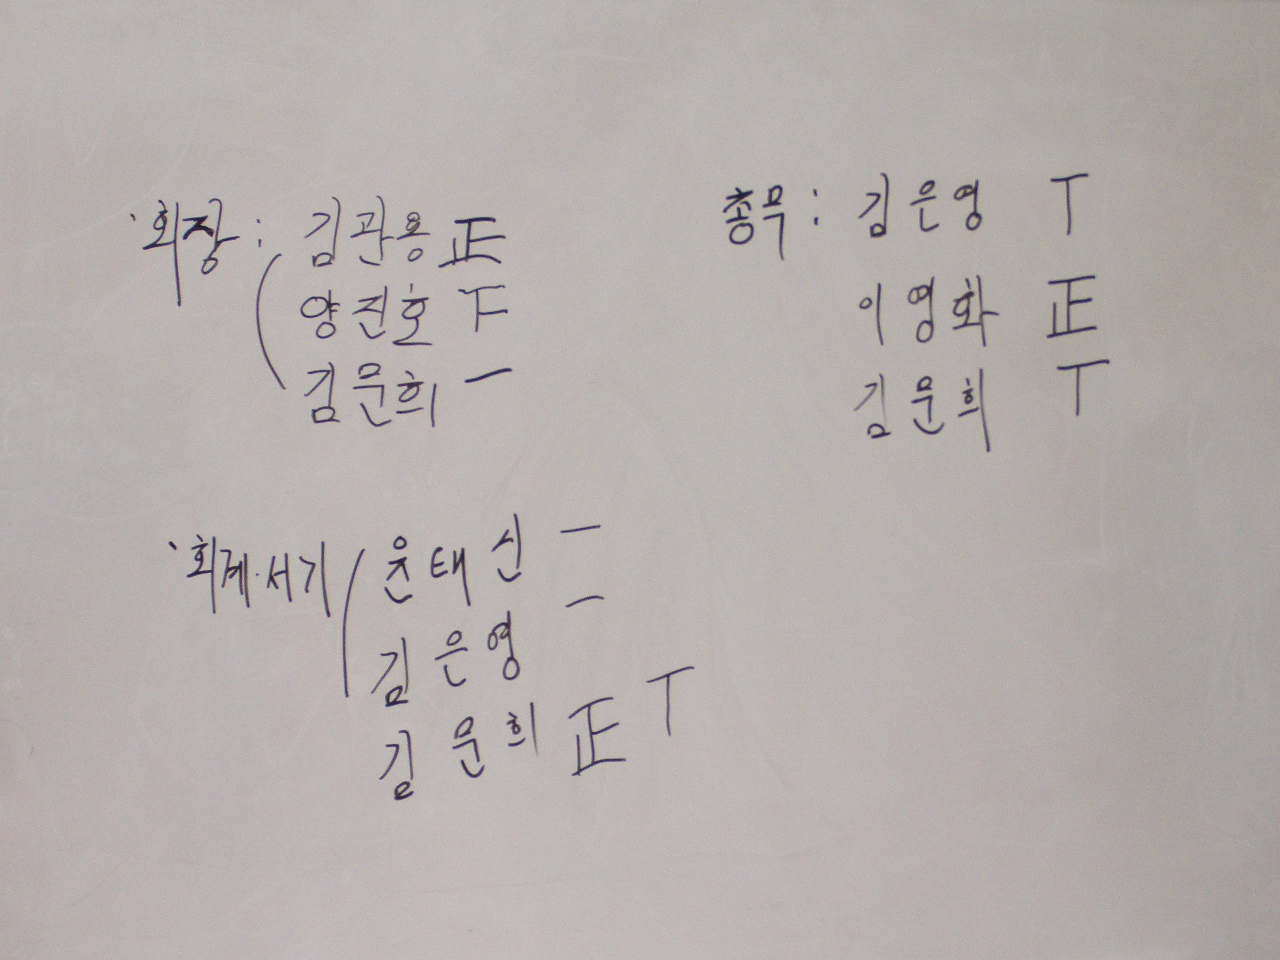 회장 : 김관용 正
양진호 下
김문희 一
총무 : 김은영 丅
이영화 正
김문희 丅
회계·서기 윤태신 一
김은영 一
김문희 正 丅